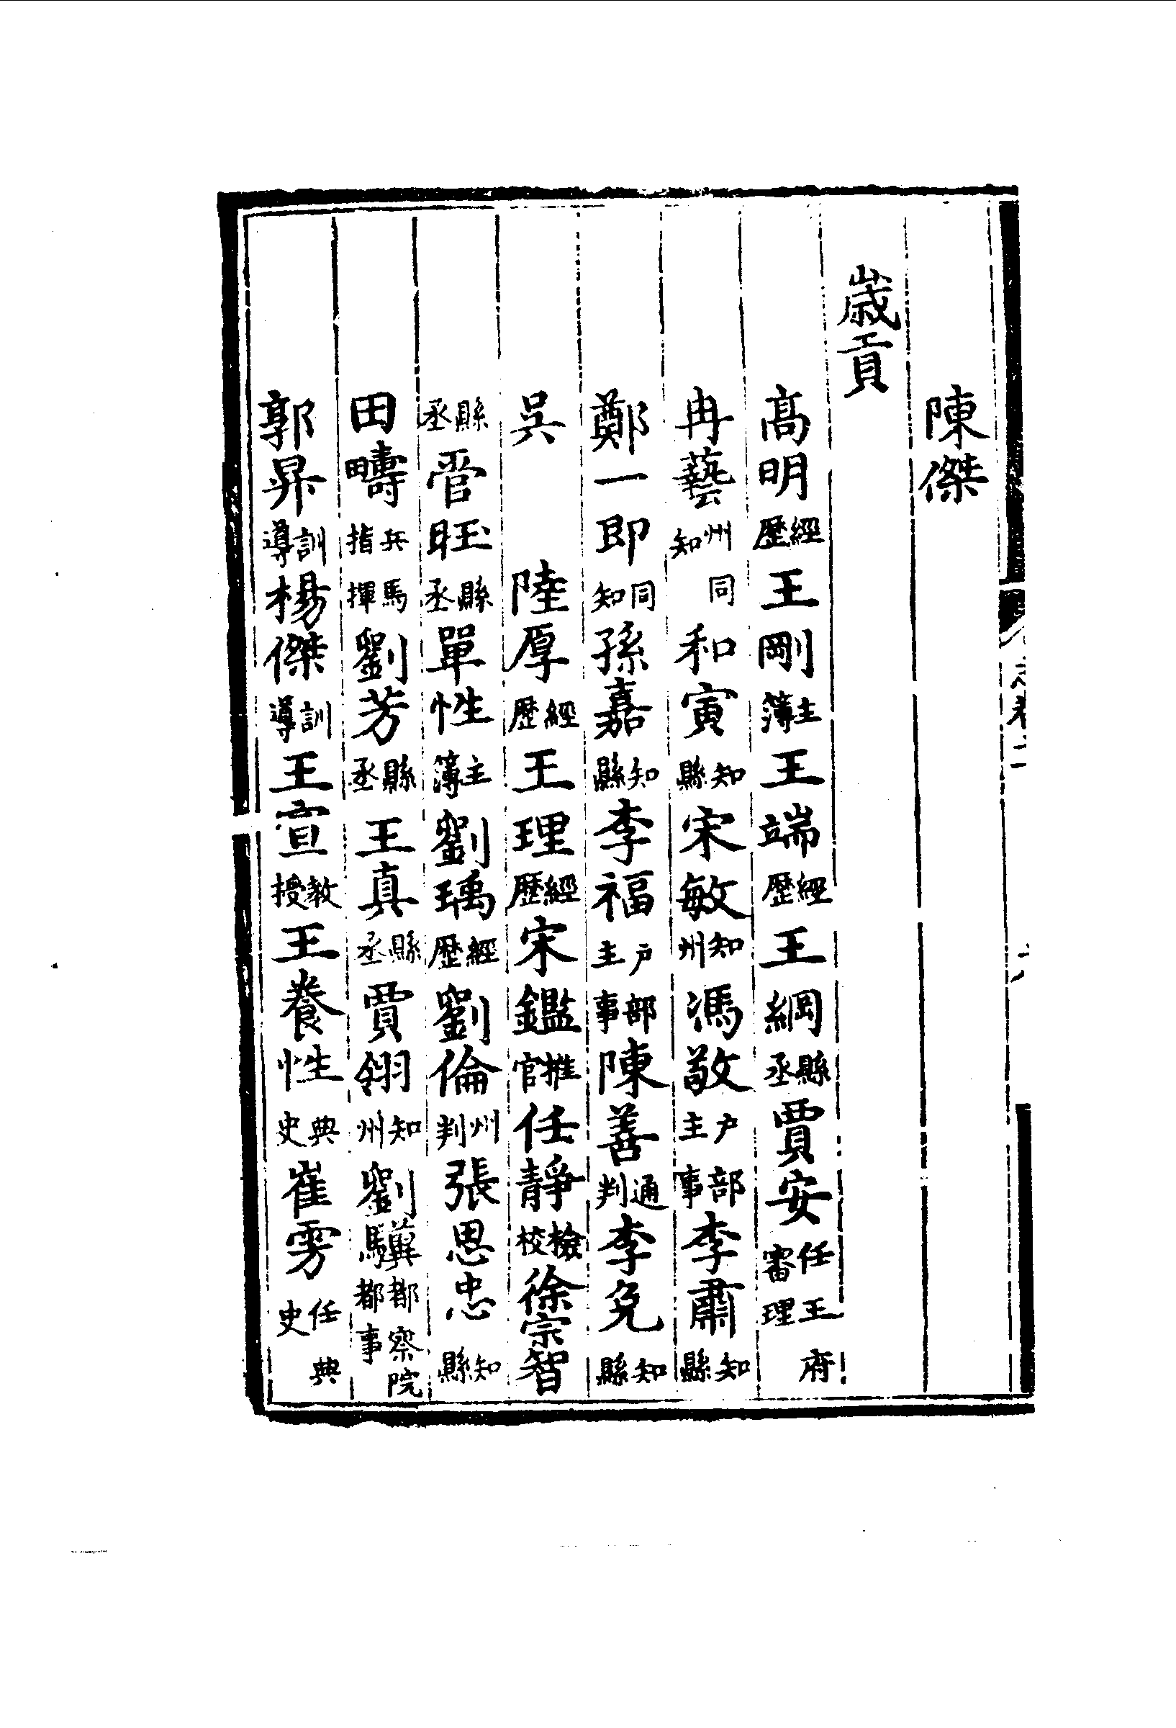 陳傑
歲貢
高明經歷王剛主簿王端經歷王綱縣丞賈安任王府審理
冉藝州同知和寅知縣宋敏知州馮敬户部主事李肅知縣
鄭一即同知孫嘉知縣李福户部主事陳善通判李免知縣
吳　陸厚經歷王理經歷宋鑑推官任靜檢校徐宗智
縣丞管旺縣丞單性主簿劉瑀經歷劉倫州判張思忠知縣
田疇兵馬指揮劉芳縣丞王真縣丞賈翎知州劉驥都察院都事
郭昇訓導楊傑訓導王宣教授王養性典史崔雱任典史
志卷二